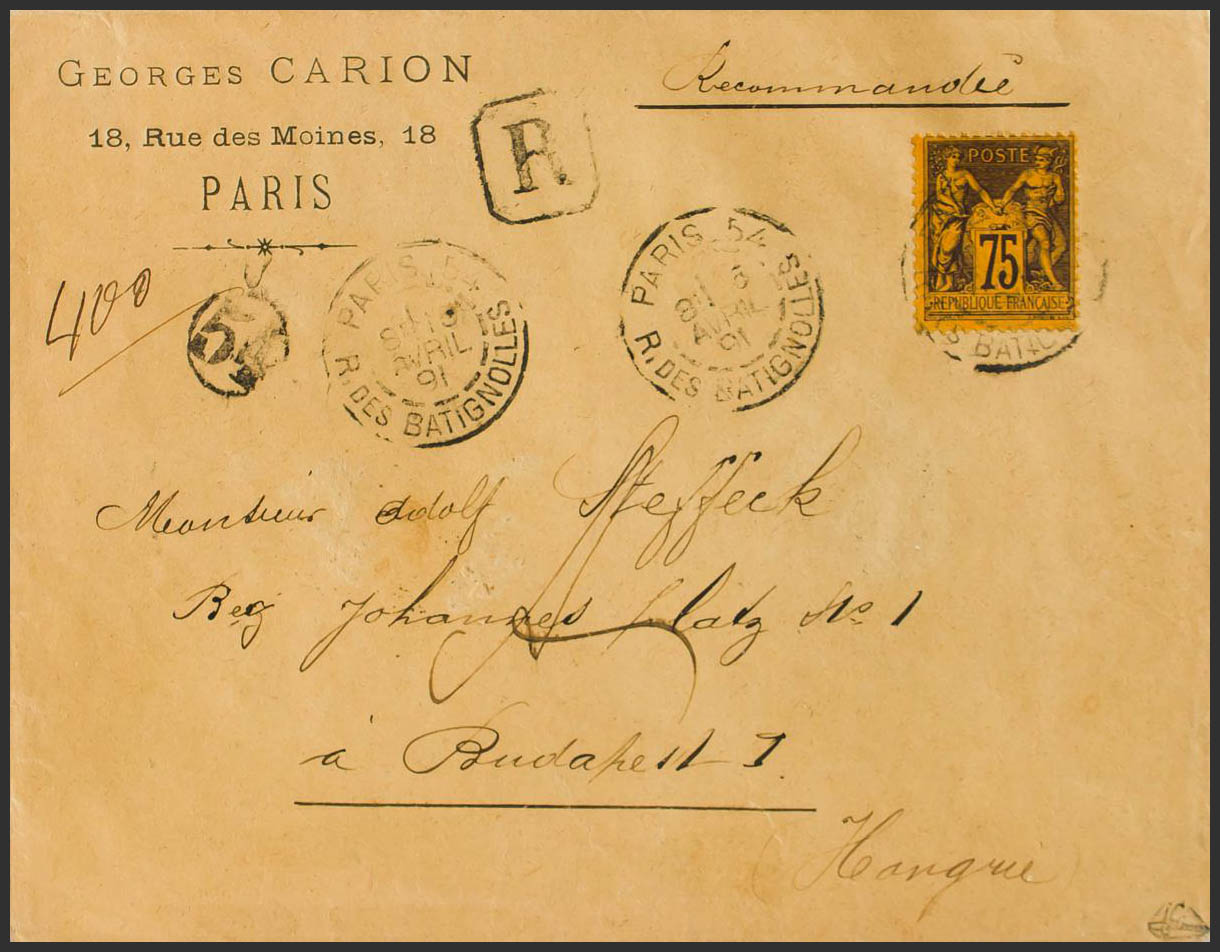 GEORGES CARION
18, Rue des Moines, 18
PARIS
Recommandée
R
POSTE
75
REPUBLIQUE FRANCAISE
400
54
PARIS 54
AVRIL
91
R. DES BATIGNOLLES
PARIS 54
AVRIL
91
R. DES BATIGNOLLES
Monsieur Adolf Steffeck
Johannes platz No 1
à Budapest I.
Hongrie